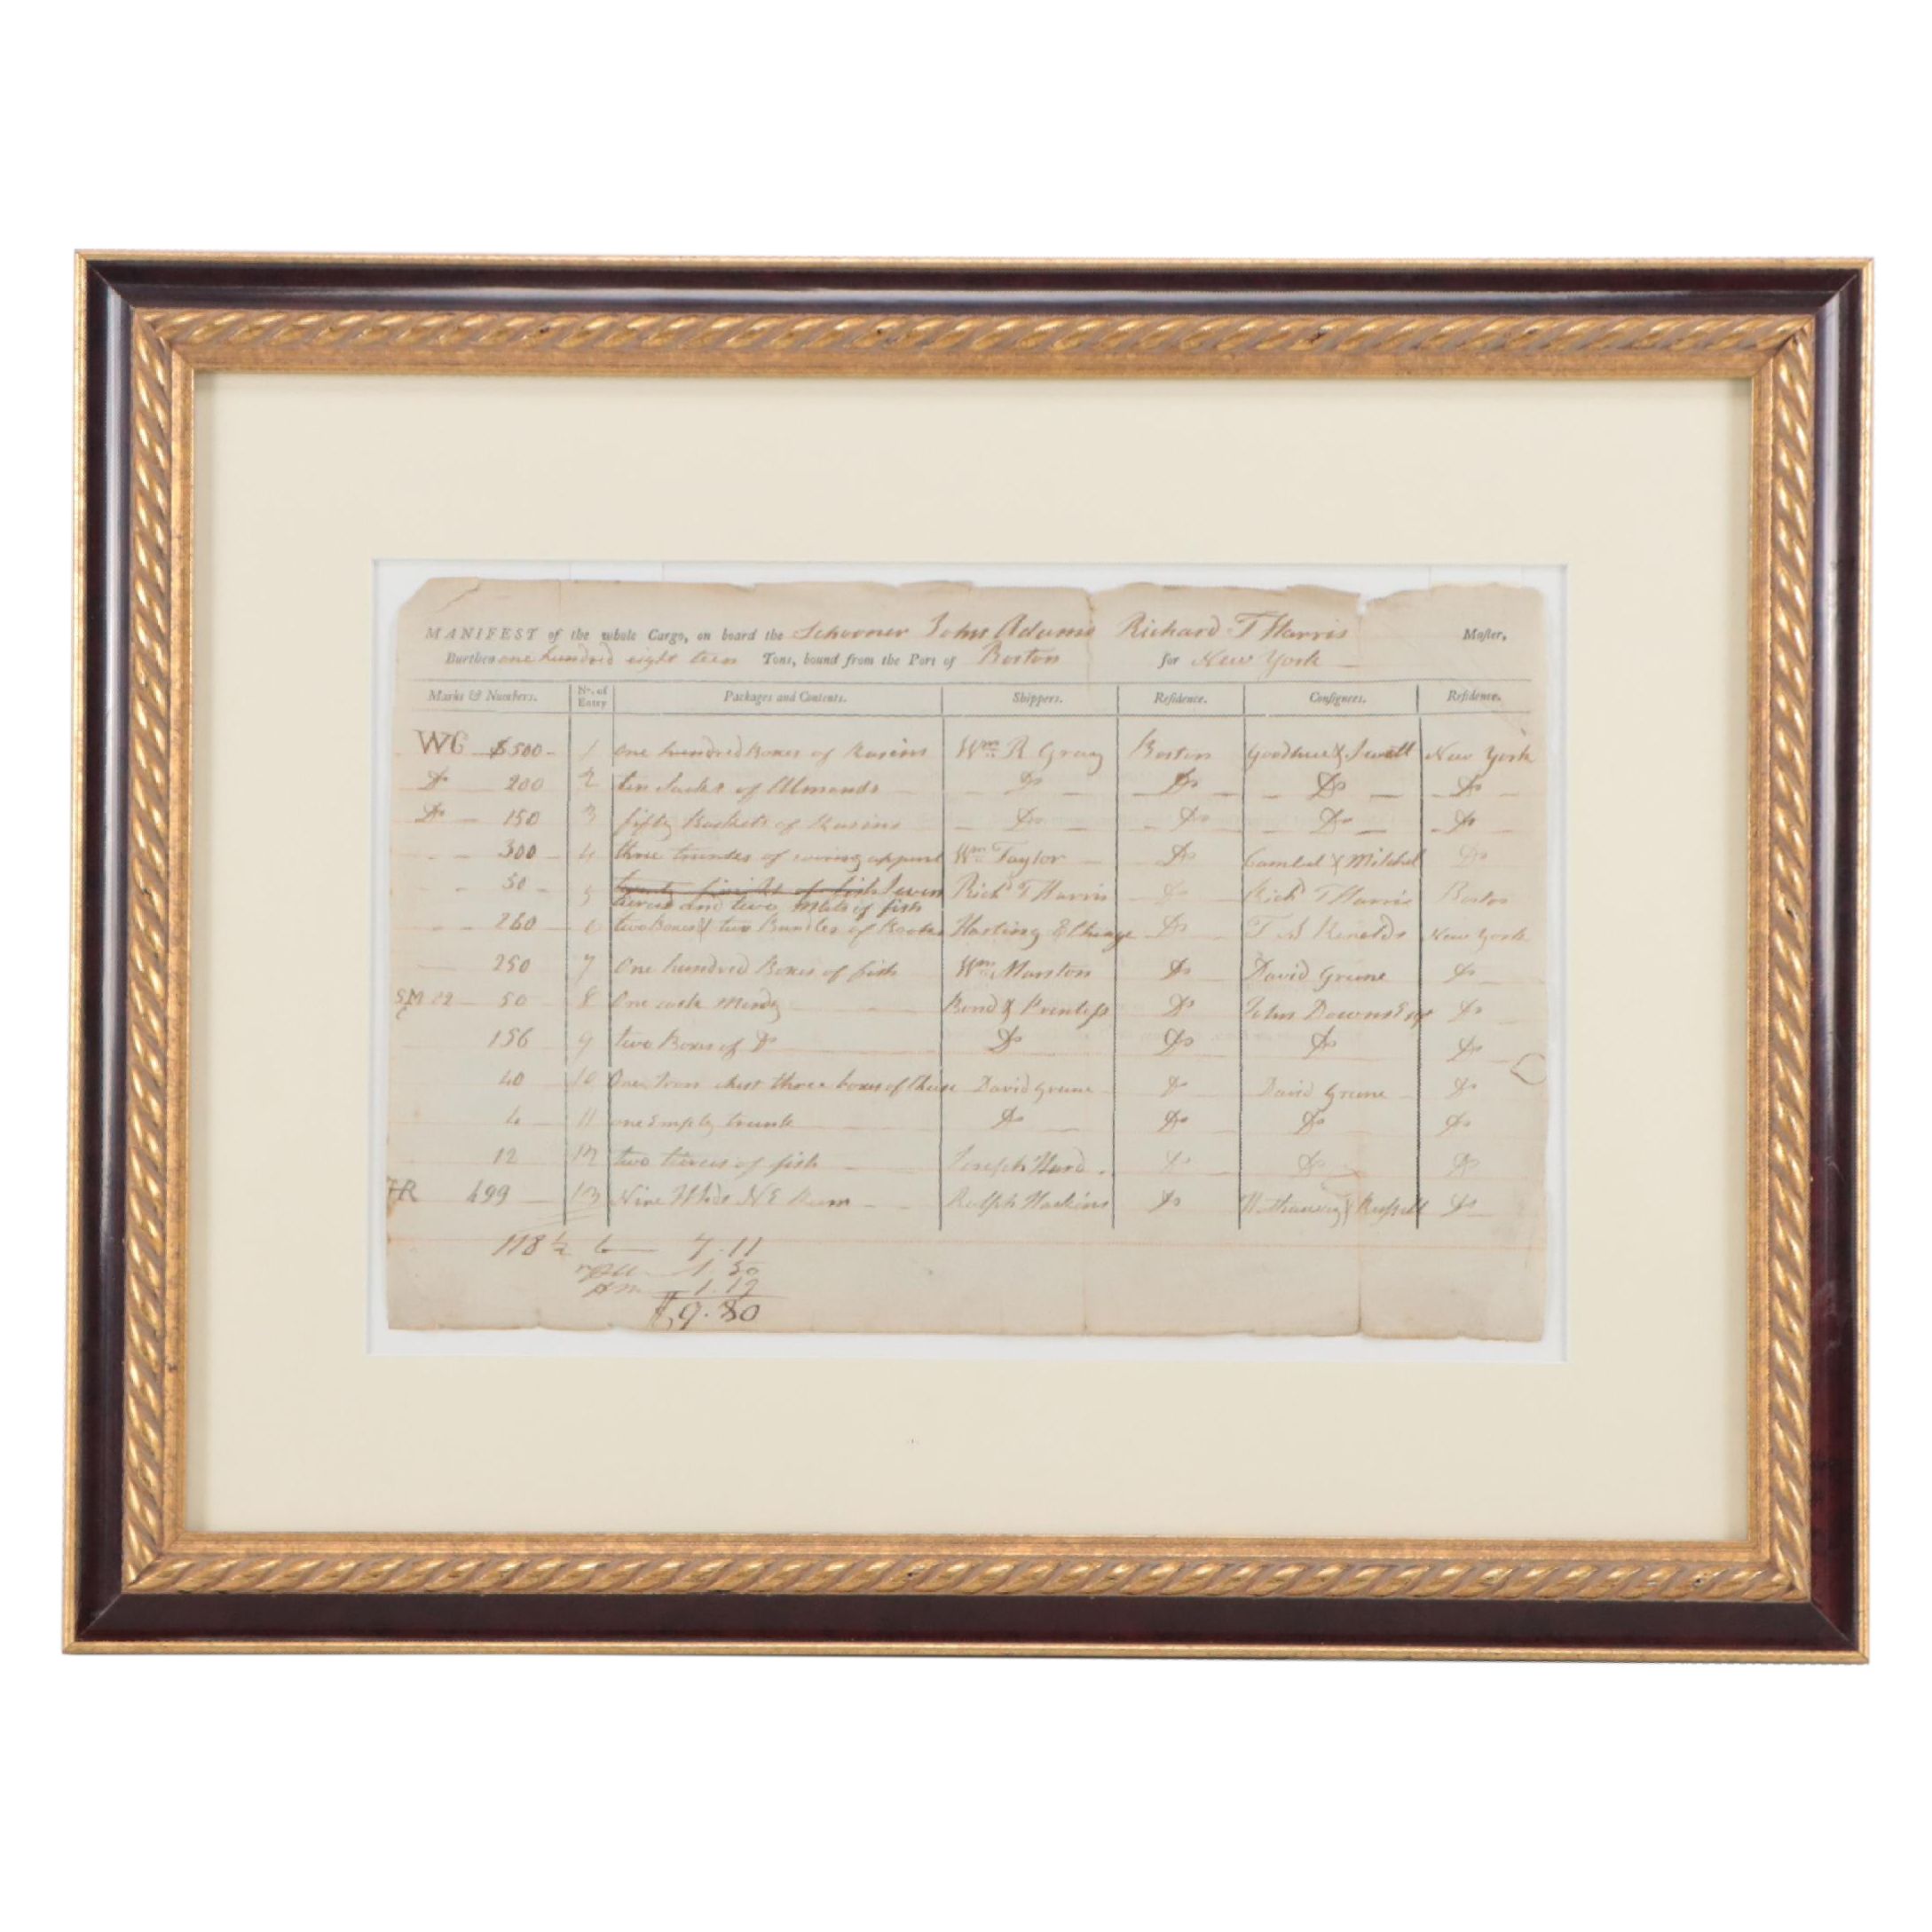 MANIFEST of the whole Cargo, on board the Schooner John Adams Richard T Harris Master,
Burthen one hundred eight teen Tons, bound from the Port of Boston for New York
Marks & Numbers. No. of Entry Packages and Contents. Shippers. Residence. Consignees. Residence.
WG $500 1 One hundred Boxes of Rasins Wm R Gray Boston Goodhue & Jewett New York
Do 200 2 ten Sacks of Almonds Do Do Do Do
Do 150 3 fifty Baskets of Rasins Do Do Do Do
300 4 three trunks of waring apparel Wm Taylor Do & Mitchel Do
50 5 twenty of fish Seven Richd T Harris Do Richd T Harris Boston
tierces and two of fish
260 6 two Boxes & two Bundles of Books Hasting & Do T New York
250 7 One hundred Boxes of fish Wm Marston Do David Greene Do
SM 22 50 8 One cask Bond & Prentiss Do John Downs Esqr Do
156 9 two Boxes of Do Do Do Do Do
40 10 One Iron chest three boxes of Chese David Greene Do David Greene Do
4 11 one Empty trunk Do Do Do Do
12 12 two tierces of fish Joseph Hurd Do Do Do
JR 499 13 Nine Hhds NE Rum Ralph Haskins Do Hathaway & Russell Do
118 1/2 6 7.11
1 50
1.19
$9.80